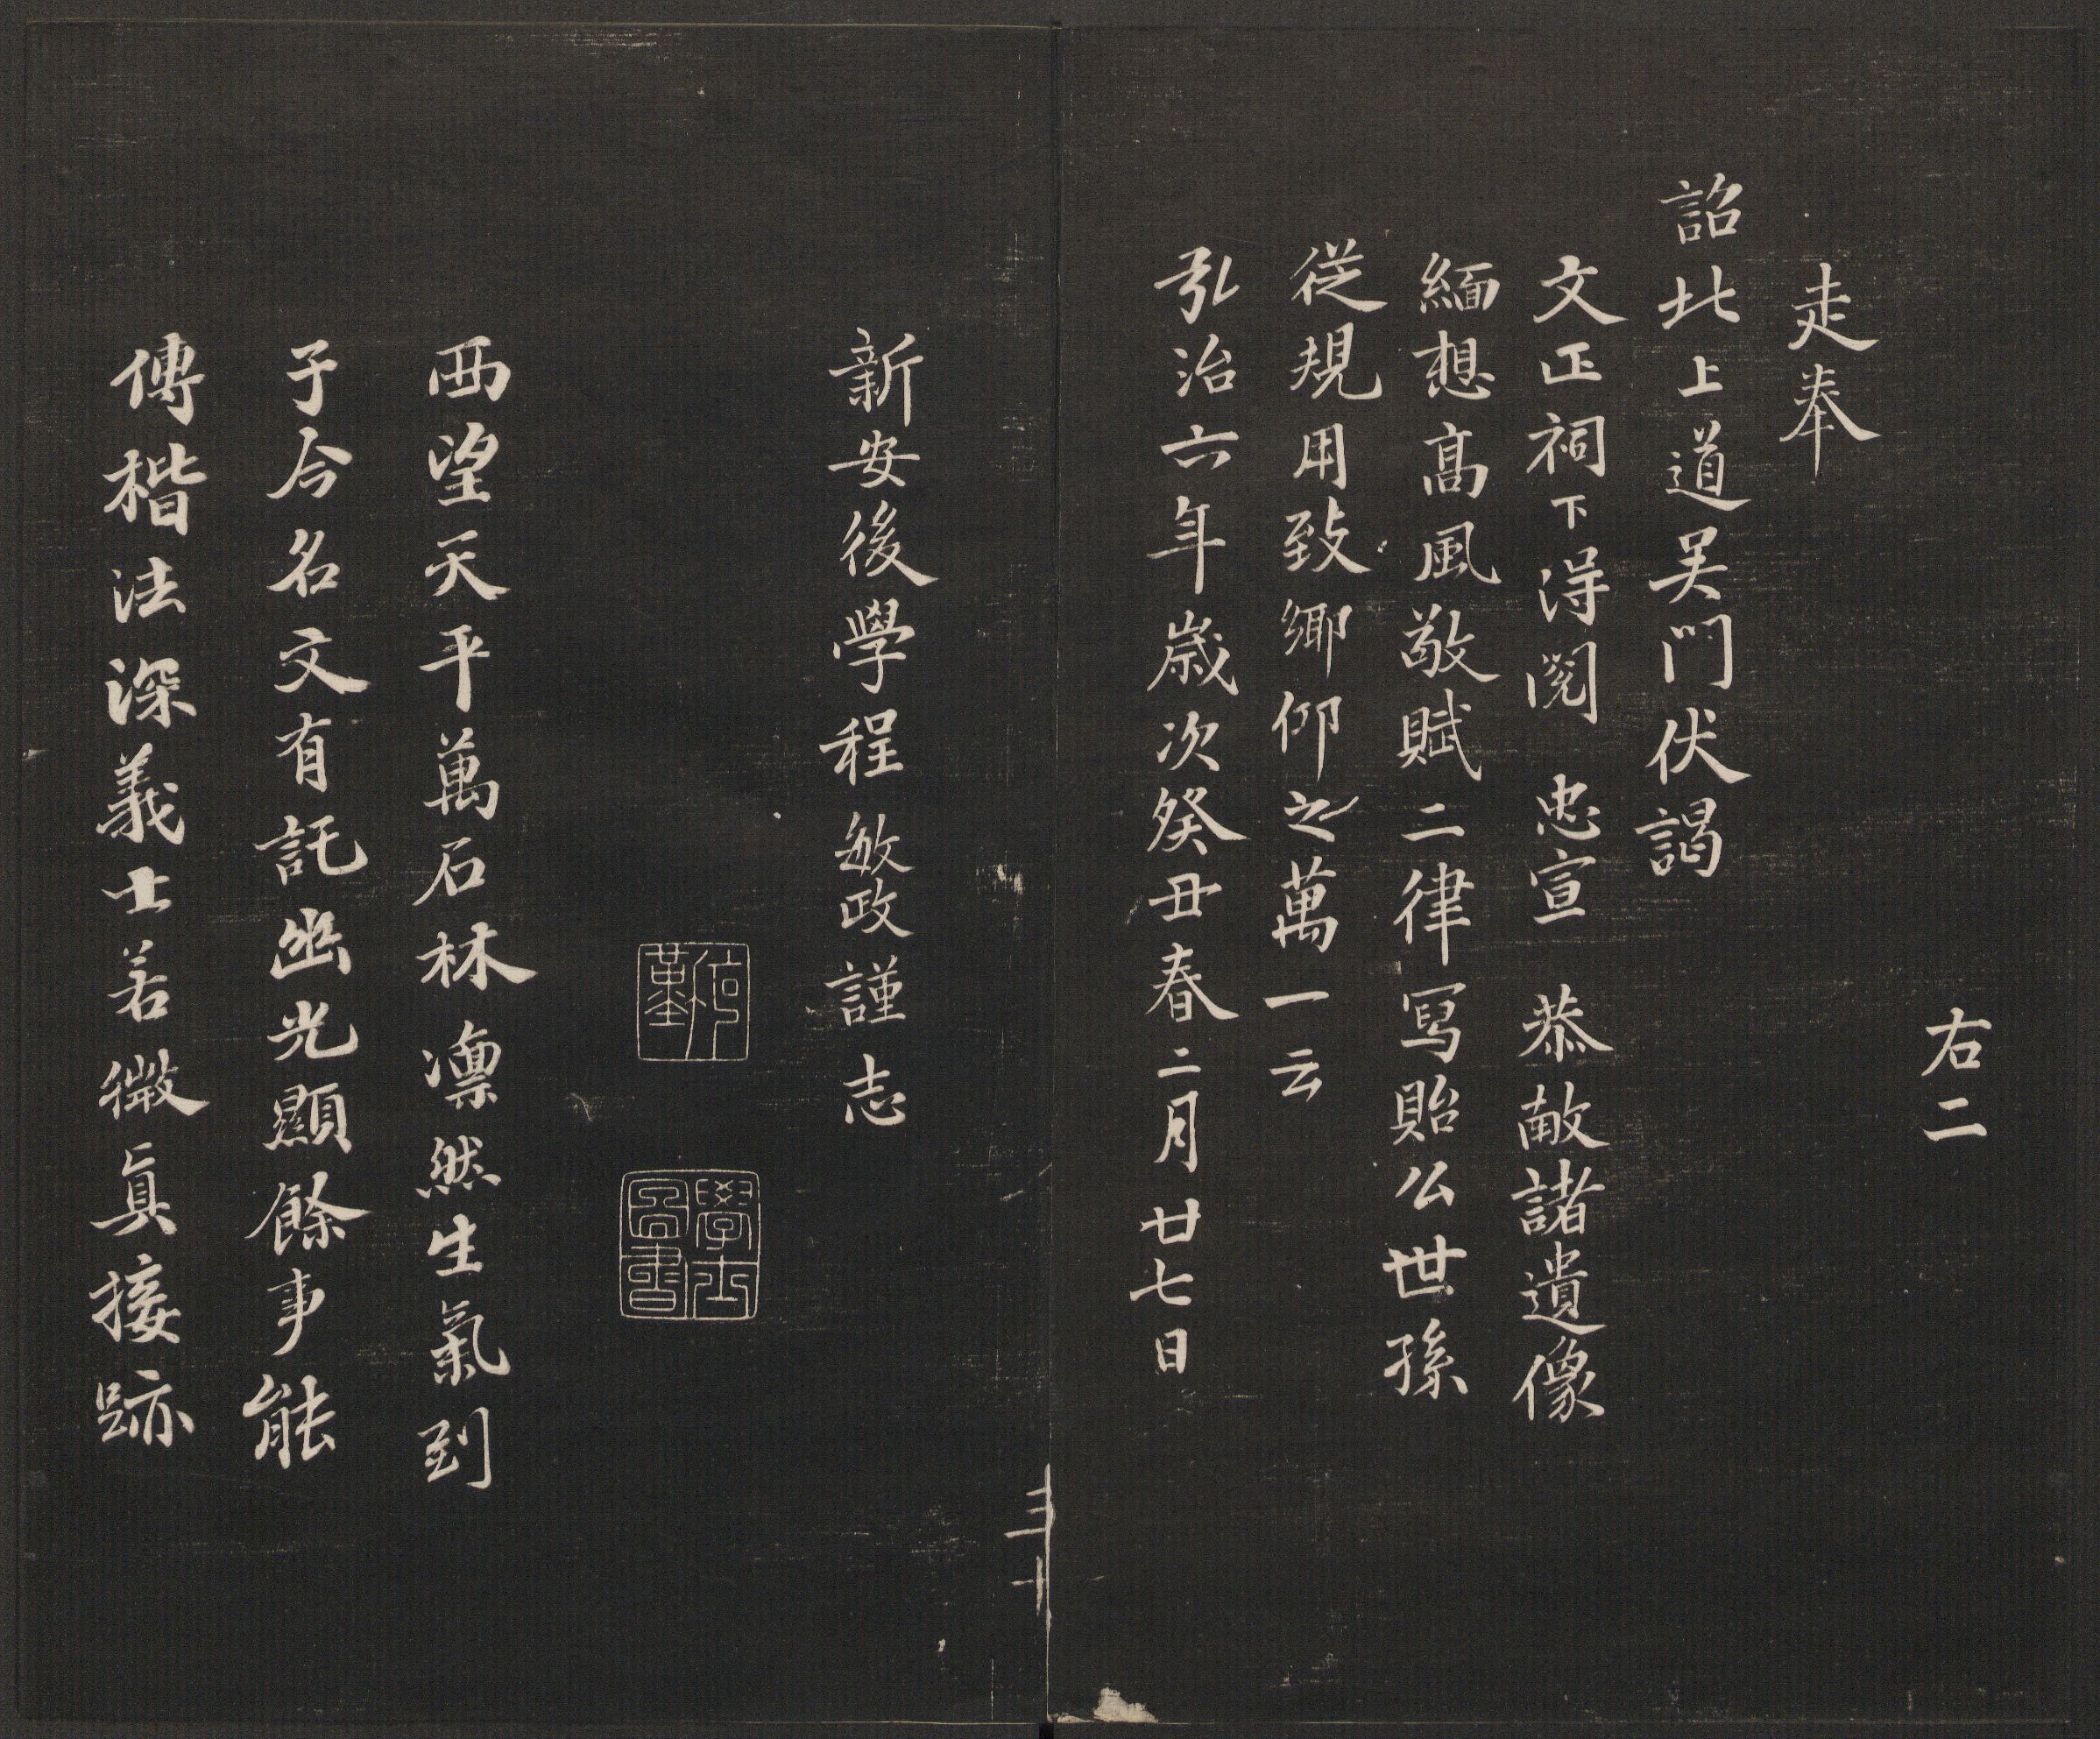 右二
走奉
詔北上道吴門伏謁
文正祠下得閲 忠宣 恭献諸遺像
緬想髙風敬賦二律寫貽公世孫
從規用致鄉仰之萬一云
弘治六年歲次癸丑春二月廿七日
新安後學程敏政謹志
克勤
學士圖書
西望天平萬石林凛然生氣到
于今名文有託幽光顯餘事能
傳楷法深義士若微真接跡